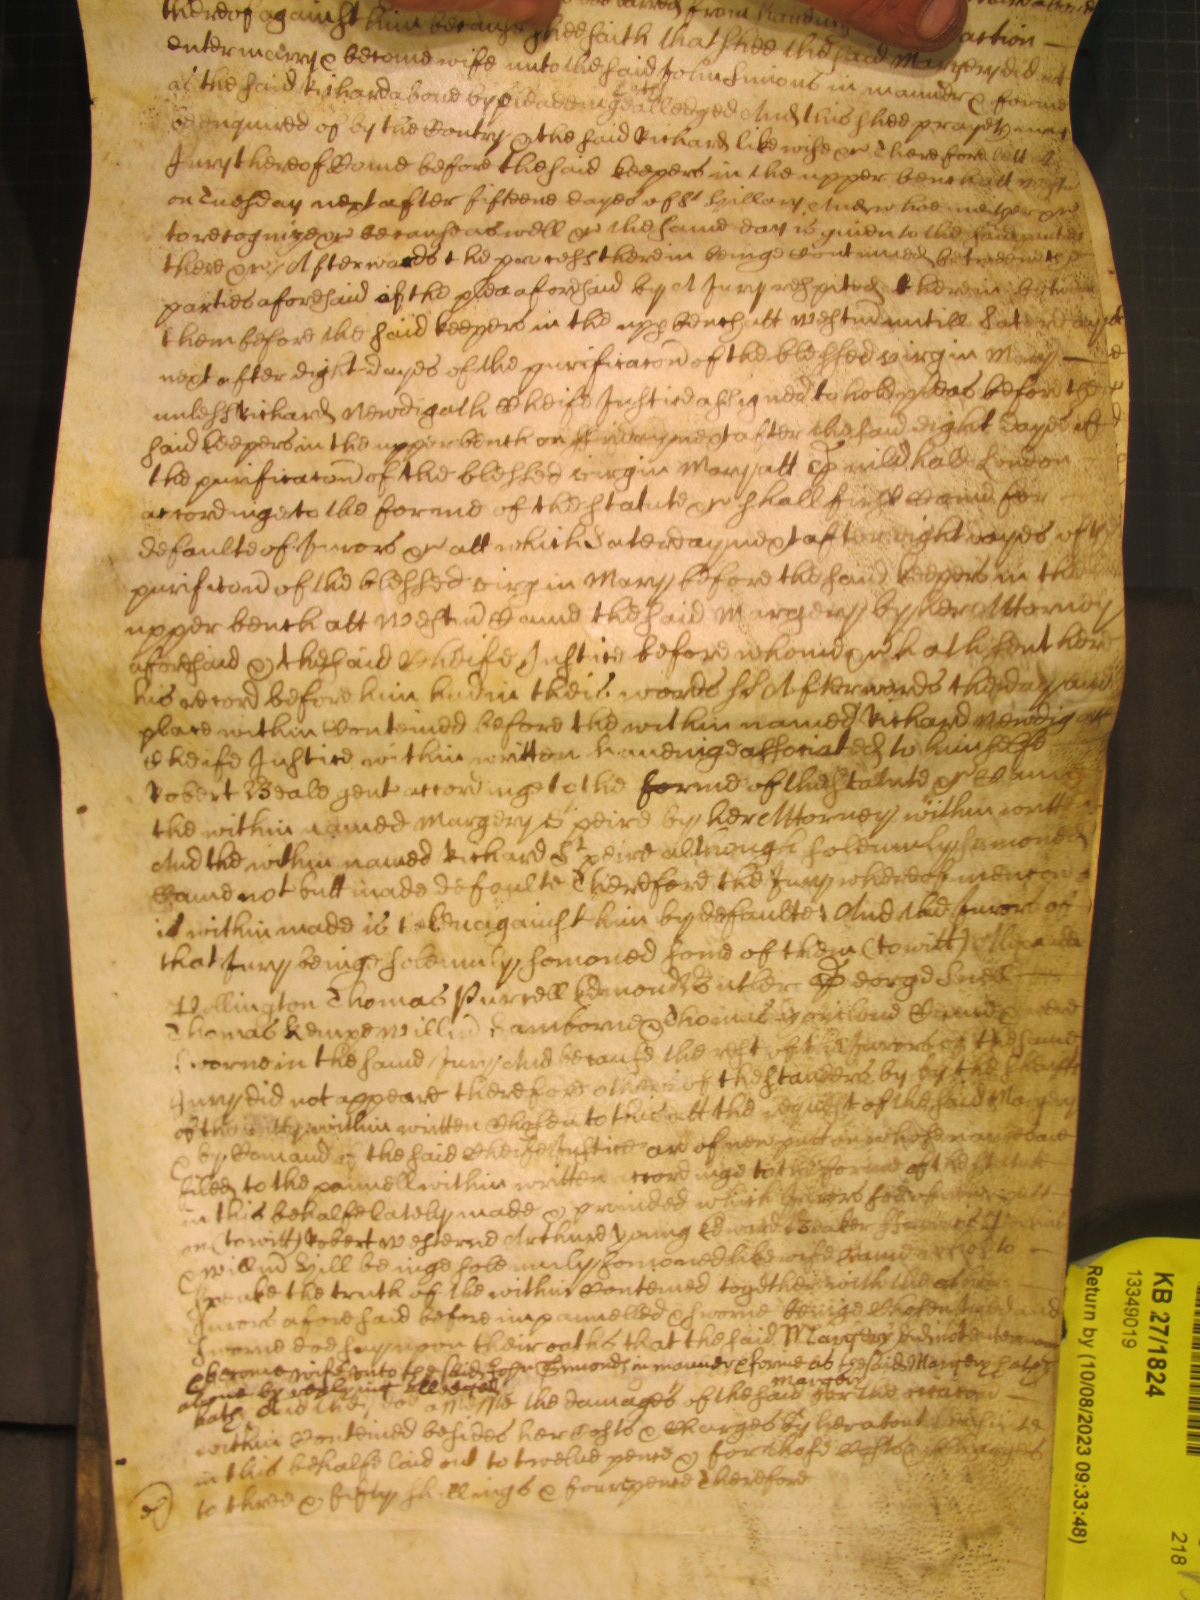 thereof against him because shee saith that shee the said Margery did not
entermarry & become wife unto the said John Simons in manner & forme
as the said Richard above by pleadeinge hath alledged And this shee prayeth may
be enquired of by the Contry & the said Richard likewise &c Therefore lett a
Jury thereof Come before the said keepers in the upper bench att
on Tuesday next after fifteene dayes of St Hillary And whoe neither &c
to recognize &c because aswell &c the same day is given to the said parties
there &c Afterwards the processe therein beinge Continued betweene the
parties aforesaid of the plea aforesaid by A Jury respited therein between
them before the said keepers in the upp bench att Westm untill Saterday
next after eight dayes of the purificacon of the blessed virgin Mary
unlesse Richard Newdigath Cheife Justice assigned to hold pleas before the
said keepers in the upper bench on Friday next after the said eight dayes of
the purificacon of the blessed virgin Mary att Guildhall London
accordinge to the forme of the statute &c shall first Come for
defaulte of Jurors &c att which Saterday next after eight dayes of the
purificacon of the blessed virgin Mary before the said keepers in the
upper bench att Westm Came the said Margery by her Attorney
aforesaid & the said Cheife Justice before whome &c hath sent here
his record before him had in theis words ss Afterwards the day and
place within Conteined before the within named Richard Newdigate
Cheife Justice within written haveinge associated to himselfe
Robert Beale gent accordinge to the forme of the statute &c Came
the within named Margery S peire by her Attorney within written
And the within named Richard St peire although solemnly somoned
Came not butt made defaulte Therefore the Jury whereof mencon
is within made is taken against him by defaulte And the Jurors of
that Jury beinge solemnly somoned some of them (to witt)
Pollington Thomas Purcell Edmond Butler George Snell
Thomas Kempe Willm Samborne & Thomas Came & were
sworne in the said Jury And because the rest of the Jurors of the same
Jury did not appeare therefore others of the standers by by the Sheriffe
of the within written Chosen to this att the request of the said Margery
& by Comand of the said Cheife Justice are of new putt on whose names are
filed to the pannell within written accordinge to the forme of the statute
in this behalfe lately made & provided which Jurors soe of new putt
on (to witt) Robert Westerne Arthure Young Edward Baker
& Willm Hill beinge solemnly somoned likewise Came & to
speake the truth of the within Conteined together with the other
Jurors aforesaid before impannelled & sworne beinge Chosen tryed and
sworne doe say upon their oaths that the said Margery did not entermarry
& become wife unto the said John Simonds in manner & forme as the said Margery hath
above by replying alledged
And they doe assesse the damages of the said Margery for the
within Conteined besides her Costs & Charges by her about her suite
in this behalfe laid out to twelve pence & for those Costs & Charges
to three & fifty shillings & fourpence Therefore
KB 27/1824
13349019
Return by (10/08/2023 09:33:48)
218